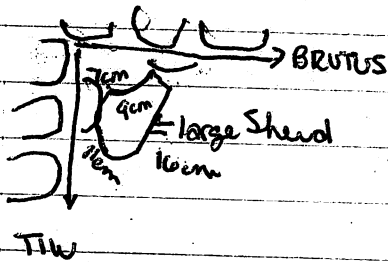 BRUTUS
7cm
9cm
large Sherd
11cm
16cm
TIW